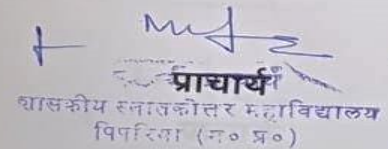 प्राचार्य
शासकीय स्नातकोत्तर महाविद्यालय
पिपरिया (म० प्र०)